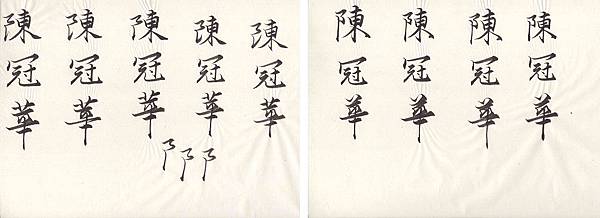 陳冠華
陳冠華
陳冠華
陳冠華
陳冠華
阝阝阝
陳冠華
陳冠華
陳冠華
陳冠華